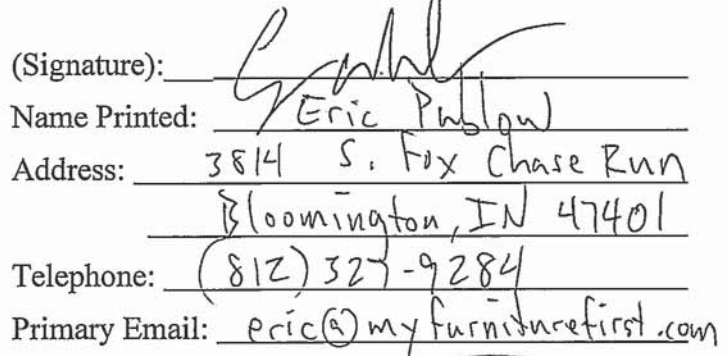 (Signature):
Name Printed: Eric Publow
Address: 3814 S. Fox Chase Run
Bloomington, IN 47401
Telephone: (812) 327-9284
Primary Email: eric@myfurniturefirst.com